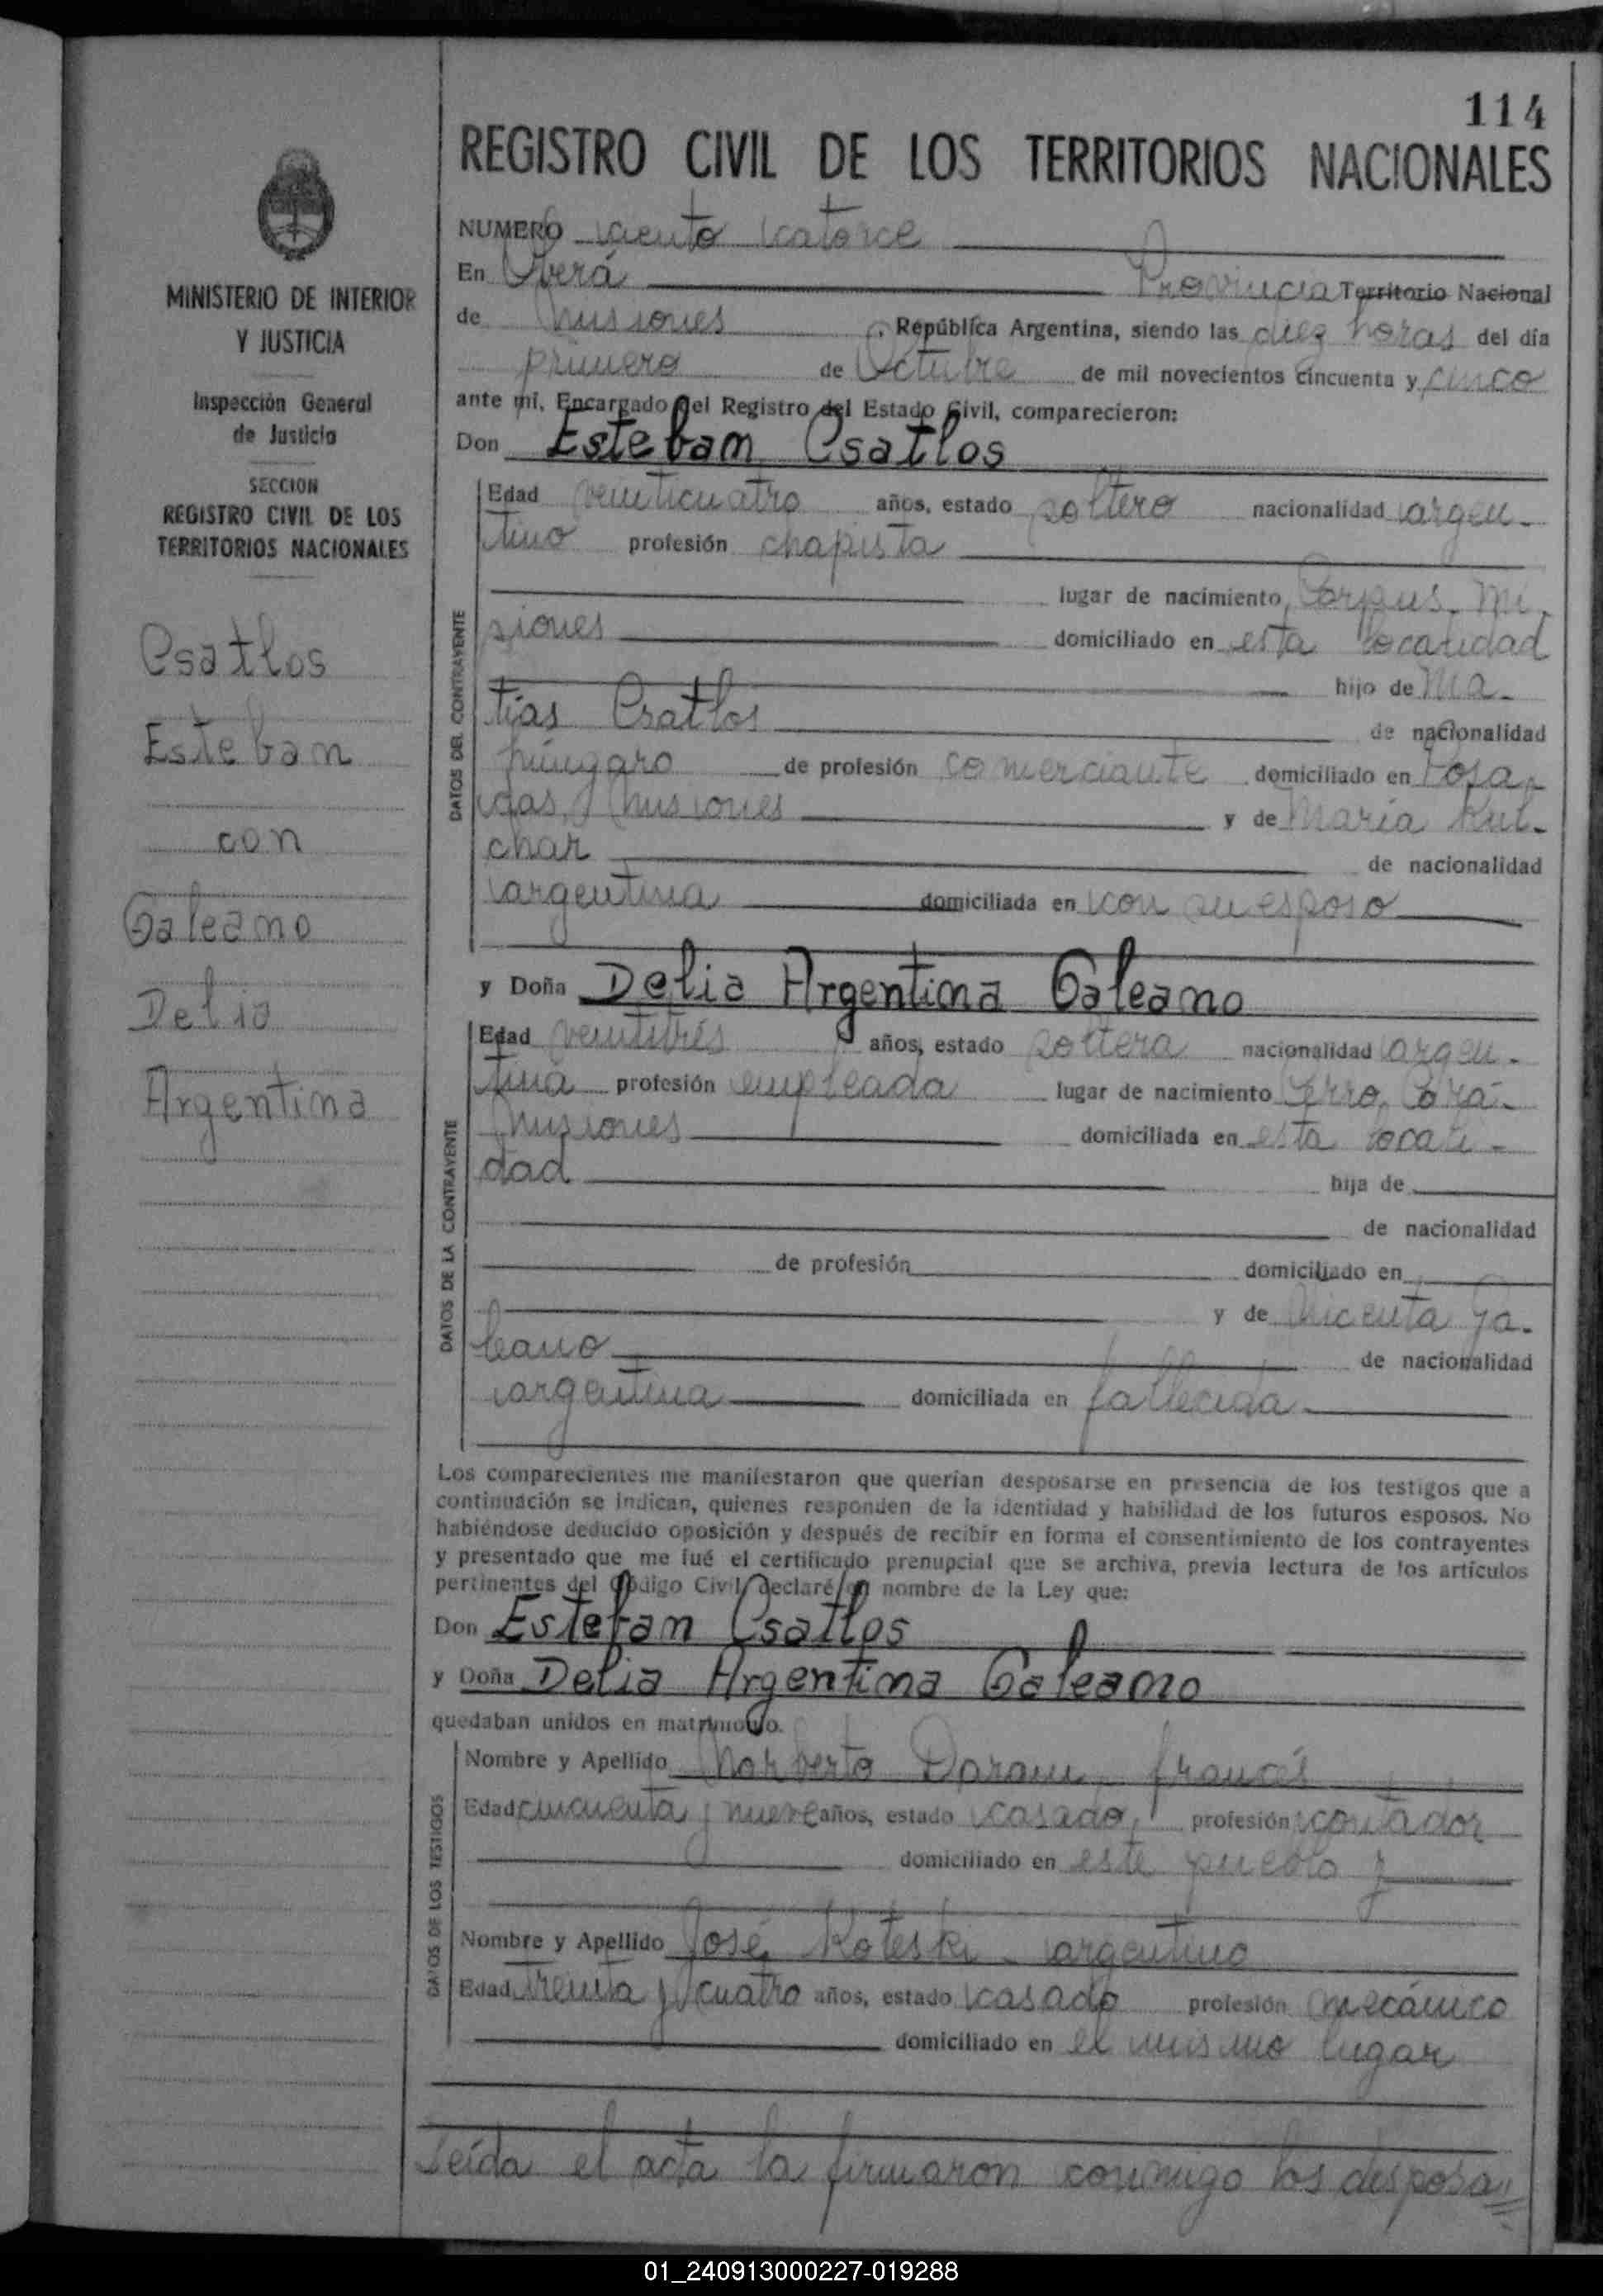 114
REGISTRO CIVIL DE LOS TERRITORIOS NACIONALES
MINISTERIO DE INTERIOR
Y JUSTICIA
Inspección General
de Justicia
SECCION
REGISTRO CIVIL DE LOS
TERRITORIOS NACIONALES
Csatlos
Esteban
con
Galeano
Delia
Argentina
NUMERO ciento catorce
En Oberá Provincia Territorio Nacional
de Misiones , República Argentina, siendo las diez horas del día
primero de Octubre de mil novecientos cincuenta y cinco
ante mí, Encargado del Registro del Estado Civil, comparecieron:
Don Esteban Csatlos
DATOS DEL CONTRAYENTE
Edad veinticuatro años, estado soltero nacionalidad argen-
tino profesión chapista
lugar de nacimiento Corpus, Mi-
siones domiciliado en esta localidad
hijo de Ma-
tías Csatlos de nacionalidad
húngaro de profesión comerciante domiciliado en Posa-
das, Misiones y de María Kul-
char de nacionalidad
argentina domiciliada en con su esposo
y Doña Delia Argentina Galeano
DATOS DE LA CONTRAYENTE
Edad veintitrés años, estado soltera nacionalidad argen-
tina profesión empleada lugar de nacimiento Cerro Corá-
Misiones domiciliada en esta locali-
dad hija de
de nacionalidad
de profesión domiciliado en
y de Vicenta Ga-
leano de nacionalidad
argentina domiciliada en fallecida
Los comparecientes me manifestaron que querían desposarse en presencia de los testigos que a
continuación se indican, quienes responden de la identidad y habilidad de los futuros esposos. No
habiéndose deducido oposición y después de recibir en forma el consentimiento de los contrayentes
y presentado que me fué el certificado prenupcial que se archiva, previa lectura de los artículos
pertinentes del Código Civil, declaré en nombre de la Ley que:
Don Esteban Csatlos
y Doña Delia Argentina Galeano
quedaban unidos en matrimonio.
DATOS DE LOS TESTIGOS
Nombre y Apellido Norberto francés
Edad cincuenta y nueve años, estado casado, profesión contador
domiciliado en este pueblo y
Nombre y Apellido José Koteski - argentino
Edad treinta y cuatro años, estado casado profesión mecánico
domiciliado en el mismo lugar
Leída el acta la firmaron conmigo los desposa
01_240913000227-019288